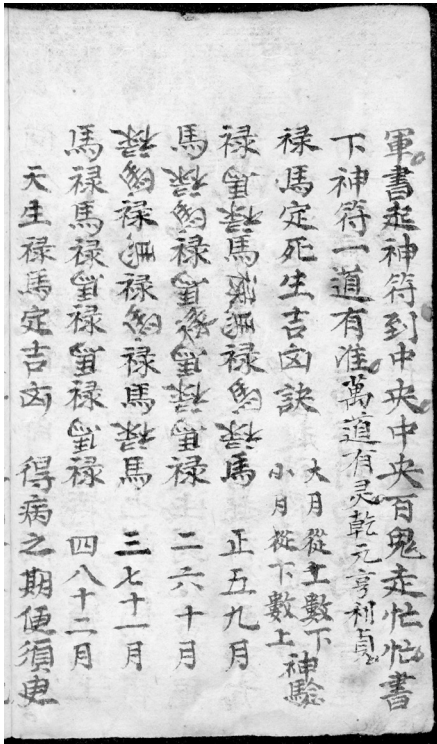 軍書起神符到中央中央百鬼走忙忙書
下神符一道有准萬道有灵乾元亨利貞
禄馬定死生吉凶訣 大月從上數下 小月從下數上 神驗
禄馬禄馬禄馬禄馬禄馬 正五九月
馬禄馬禄馬禄馬禄馬禄 二六十月
禄馬禄馬禄馬禄馬禄馬 三七十一月
馬禄馬禄馬禄馬禄馬禄 四八十二月
天生禄馬定吉凶 得病之期便須